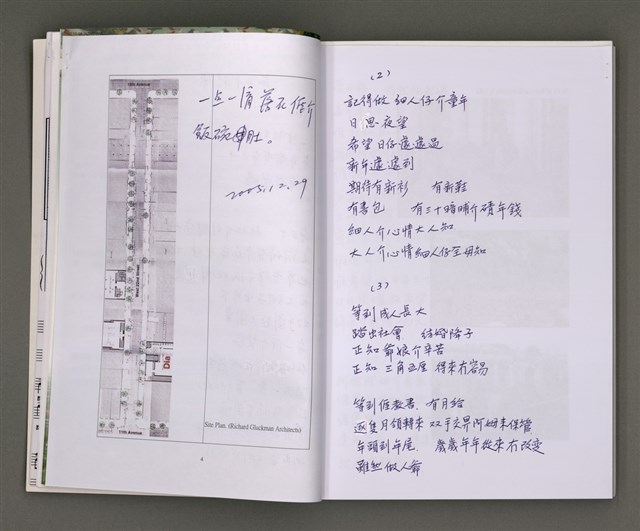 一点一滴落在𠊎介
飯碗肚。
2005.12.29
10th Avenue
West 22nd Street
Dia
11th Avenue
Site Plan. (Richard Gluckman Architects)
4
(2)
記得做 細人仔介童年
日思夜望
希望日仔遽遽過
新年遽遽到
期待有新衫 有新鞋
有書包 有三十暗晡介磧年錢
細人介心情大人知
大人介心情細人仔毋知
(3)
等到成人長大
踏出社會 結婚降子
正知爺娘介辛苦
正知 三角五厘 得來冇容易
等到𠊎教書 有月給
逐隻月領轉來 双手交畀阿姆來保管
年頭到年尾 歲歲年年從來冇改變
雖然做人爺